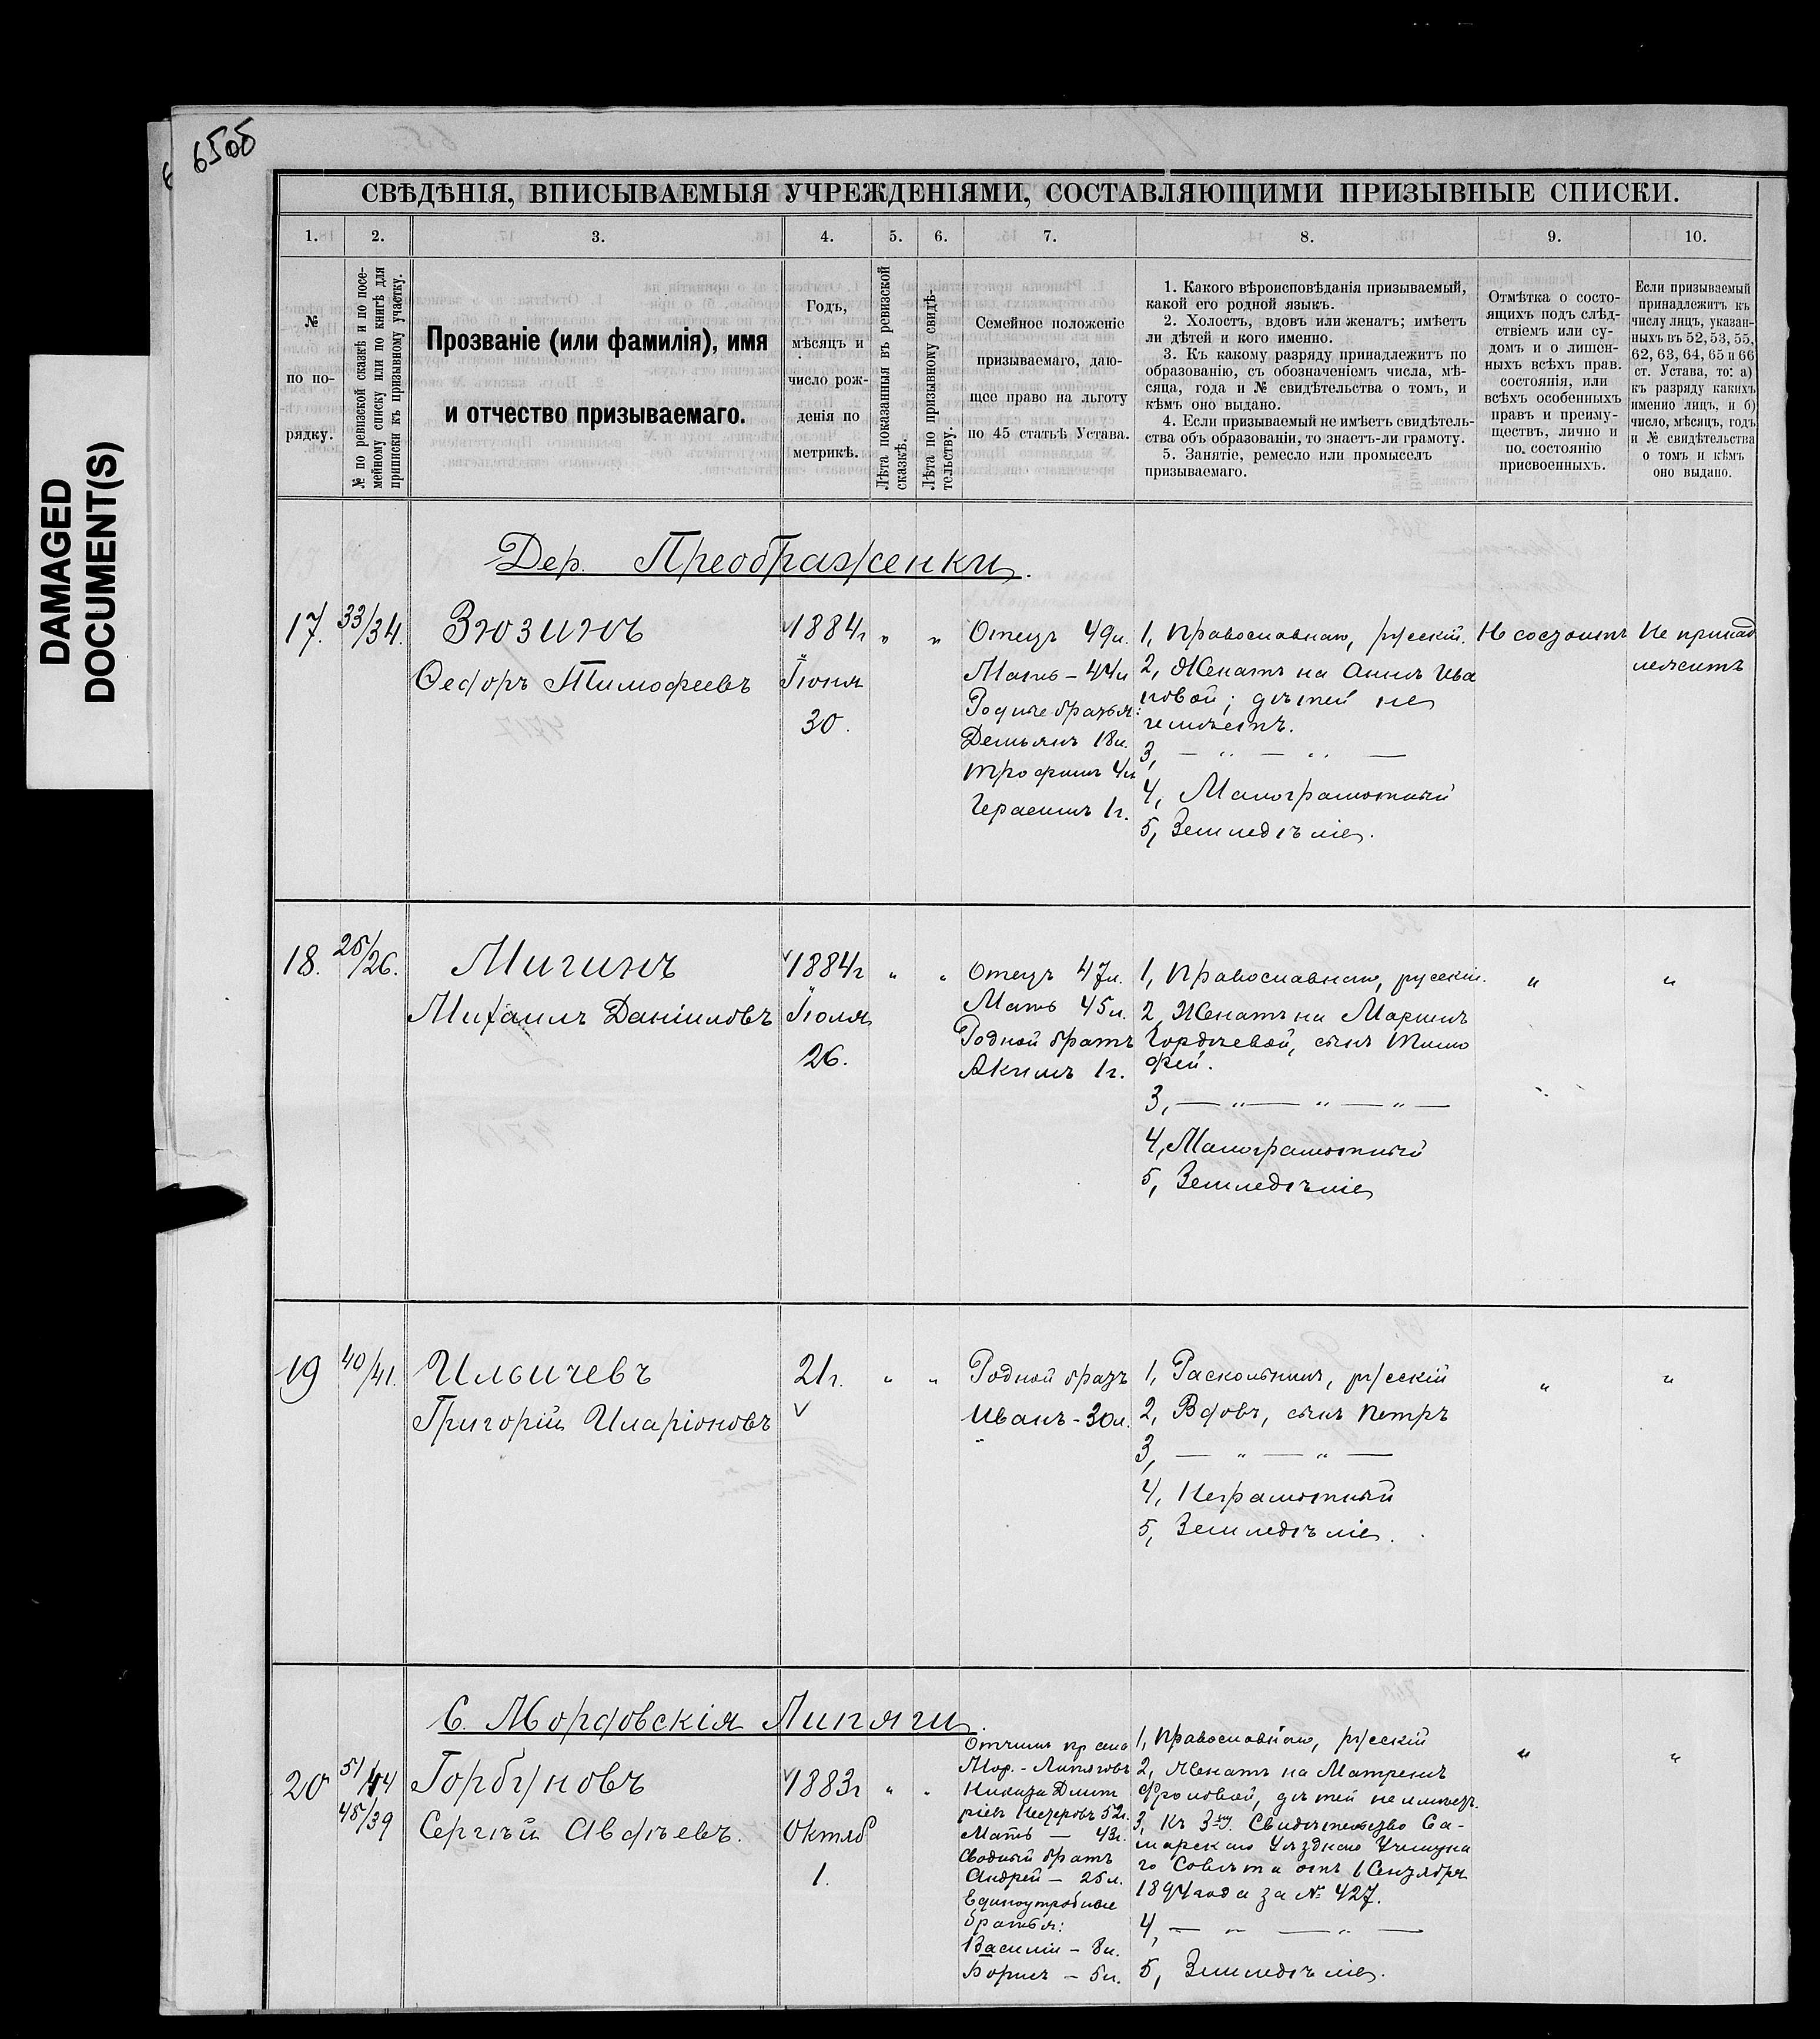 65об
DAMAGED
DOCUMENT(S)
СВѢДѢНІЯ, ВПИСЫВАЕМЫЯ УЧРЕЖДЕНІЯМИ, СОСТАВЛЯЮЩИМИ ПРИЗЫВНЫЕ СПИСКИ.
1. 2. 3. 4. 5. 6. 7. 8. 9. 10.
№
по по-
рядку.
№ по ревизской сказкѣ и по посе-
мейному списку или по книгѣ для
приписки къ призывному участку.
Прозваніе (или фамилія), имя
и отчество призываемаго.
Годъ,
мѣсяцъ и
число рож-
денія по
метрикѣ.
Лѣта показанныя въ ревизской
сказкѣ.
Лѣта по призывному свидѣ-
тельству.
Семейное положеніе
призываемаго, даю-
щее право на льготу
по 45 статьѣ Устава.
1. Какого вѣроисповѣданія призываемый,
какой его родной языкъ.
2. Холостъ, вдовъ или женатъ; имѣетъ
ли дѣтей и кого именно.
3. Къ какому разряду принадлежитъ по
образованію, съ обозначеніемъ числа, мѣ-
сяца, года и № свидѣтельства о томъ, и
кѣмъ оно выдано.
4. Если призываемый не имѣетъ свидѣтель-
ства объ образованіи, то знаетъ-ли грамоту.
5. Занятіе, ремесло или промыселъ
призываемаго.
Отмѣтка о состо-
ящихъ подъ слѣд-
ствіемъ или су-
домъ и о лишен-
ныхъ всѣхъ прав.
состоянія, или
всѣхъ особенныхъ
правъ и преиму-
ществъ, лично и
по. состоянію
присвоенныхъ.
Если призываемый
принадлежитъ къ
числу лицъ, указан-
ныхъ въ 52, 53, 55,
62, 63, 64, 65 и 66
ст. Устава, то: а)
къ разряду какихъ
именно лицъ, и б)
число, мѣсяцъ, годъ
и № свидѣтельства
о томъ и кѣмъ
оно выдано.
Дер. Преображенки.
17. 33/34.
Зюзинъ
Ѳедоръ Тимофеевъ
1884г
Іюня
30.
" "
Отецъ 49л.
Мать - 44л
Родные братья:
Демьянъ 18л.
Трофимъ 4л
Герасимъ 1г.
1, Православнаго, русскій.
2, Женатъ на Аннѣ Ива
новой; дѣтей не
имѣетъ.
3, — " — " —
4, Малограмотный
5, Земледѣліе.
Не состоитъ
Не принад
лежитъ
18. 25/26.
Мигинъ
Михаилъ Даніиловъ
1884г
Іюля
26.
" "
Отецъ 47л.
Мать 45л.
Родной братъ
Акимъ 1г.
1, Православнаго, русскій.
2, Женатъ на Маріи
Гордѣевой, сынъ Тимо
фей.
3, — " — " — " —
4, Малограмотный
5, Земледѣліе
" "
19 40/41.
Ильичевъ
Григорій Иларіоновъ
21г.
" "
Родной братъ
Иванъ - 30л.
1, Раскольникъ, русскій
2, Вдовъ, сынъ Петръ
3, — " — " —
4, Неграмотный
5, Земледѣліе.
" "
С. Мордовскія Липяги.
20 51/44
45/39
Горбуновъ
Сергѣй Авдѣевъ.
1883г
Октяб
1.
" "
Отчимъ кр села
Мор. - Липяговъ
Никита Дмит
ріевъ Нестеровъ 52г.
Мать — 43г.
Сводный братъ
Андрей — 25л.
Единоутробные
братья:
Василій - 8л.
Борисъ - 5л.
1, Православнаго, русскій
2, Женатъ на Матренѣ
Фроловой, дѣтей не имѣетъ.
3, Къ 3му. Свидѣтельство Са-
марскаго Уѣзднаго Училищна
го Совѣта отъ 1 Сентября
1894 года за № 427.
4, — " — " —
5, Земледѣліе.
" "